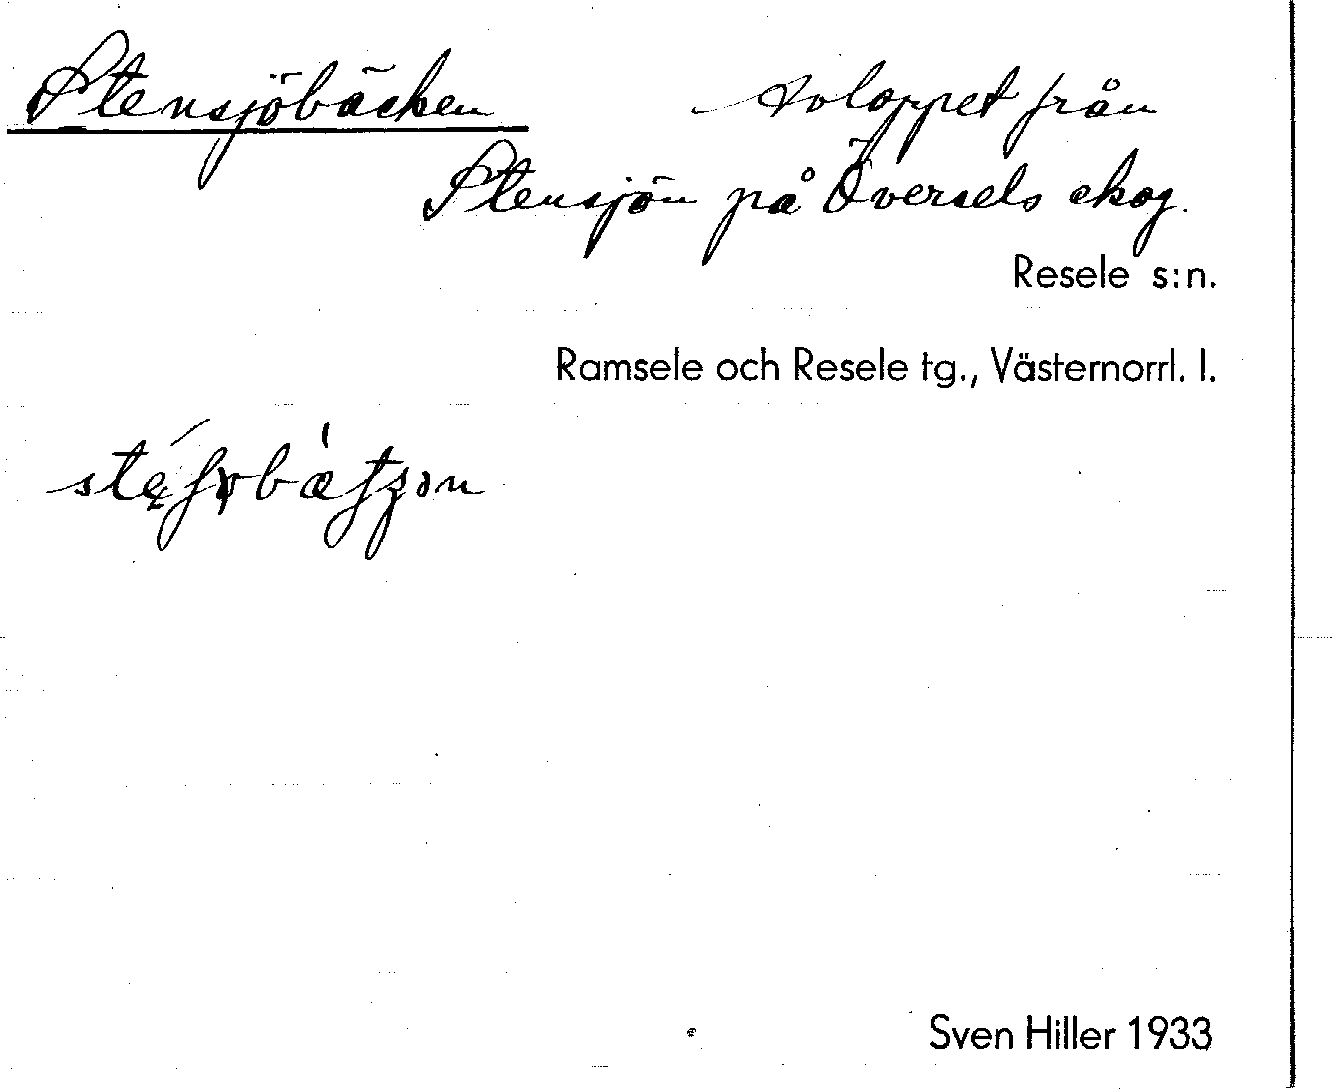 Stensjöbäcken Avloppet från
Stensjön på Översels skog.
Resele s:n.
Ramsele och Resele tg., Västernorrl. l.
Sven Hiller 1933